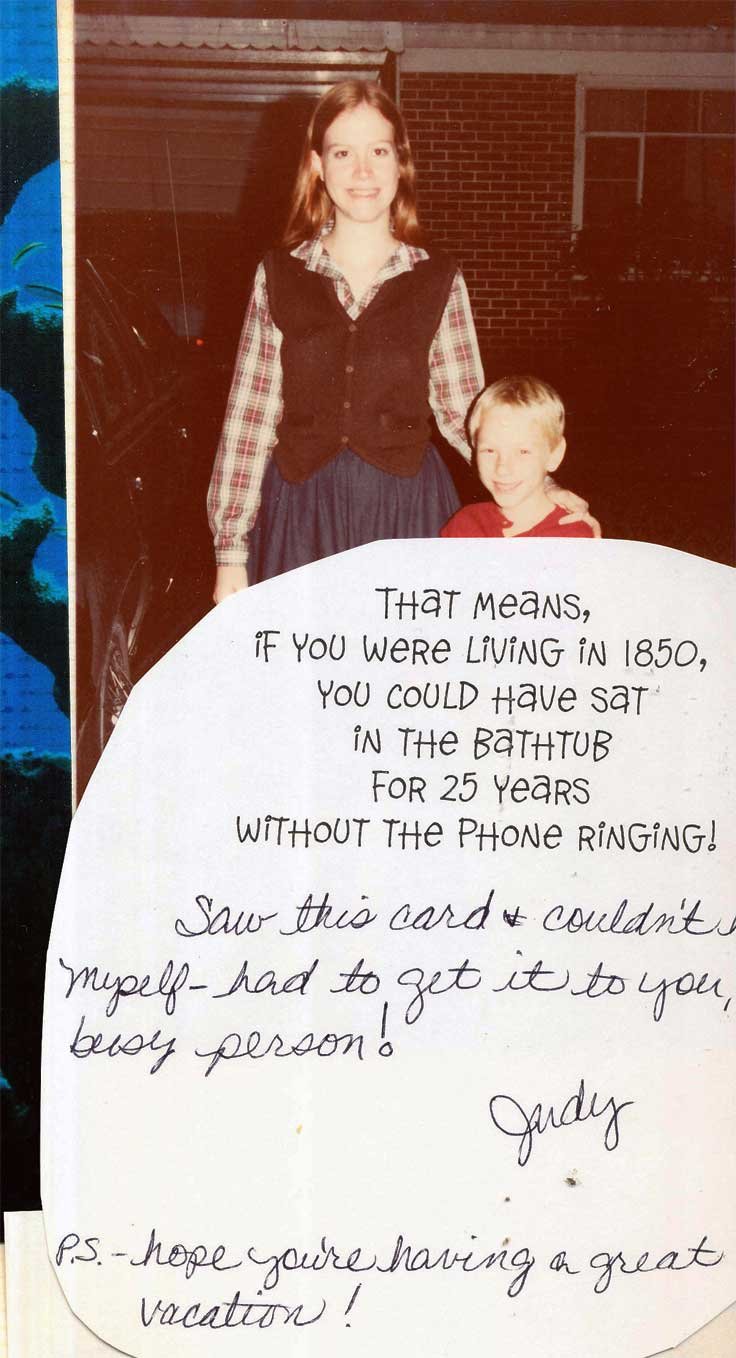 THAT MEANS,
IF YOU WERE LIVING IN 1850,
YOU COULD HAVE SAT
IN THE BATHTUB
FOR 25 YEARS
WITHOUT THE PHONE RINGING!
Saw this card & couldn't
myself - had to get it to you,
busy person!
Judy
P.S. - hope you're having a great
vacation!